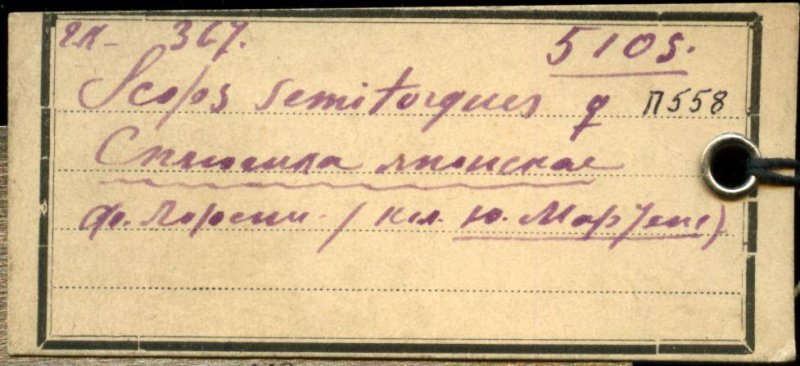 гл- 367. 5105.
Scops semitorques ♀ П558
Сплюшка японская
(кол. Ю. Мартенс)